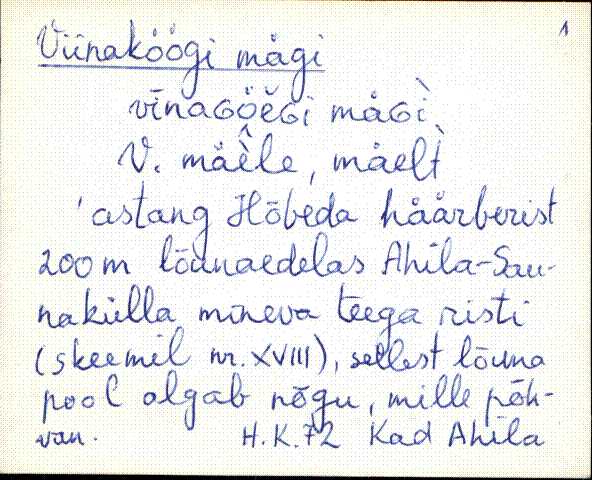 1
Viinaköögi mägi
vīnaGöĕGi mäGì
V. mäele, mäelt
'astang Hõbeda häärberist
200 m lõunaedelas Ahila-Sau-
naküla mineva teega risti
(skeemil nr. XVIII), sellest lõuna
pool algab nõgu, mille põh-
H.K.72 Kad Ahila